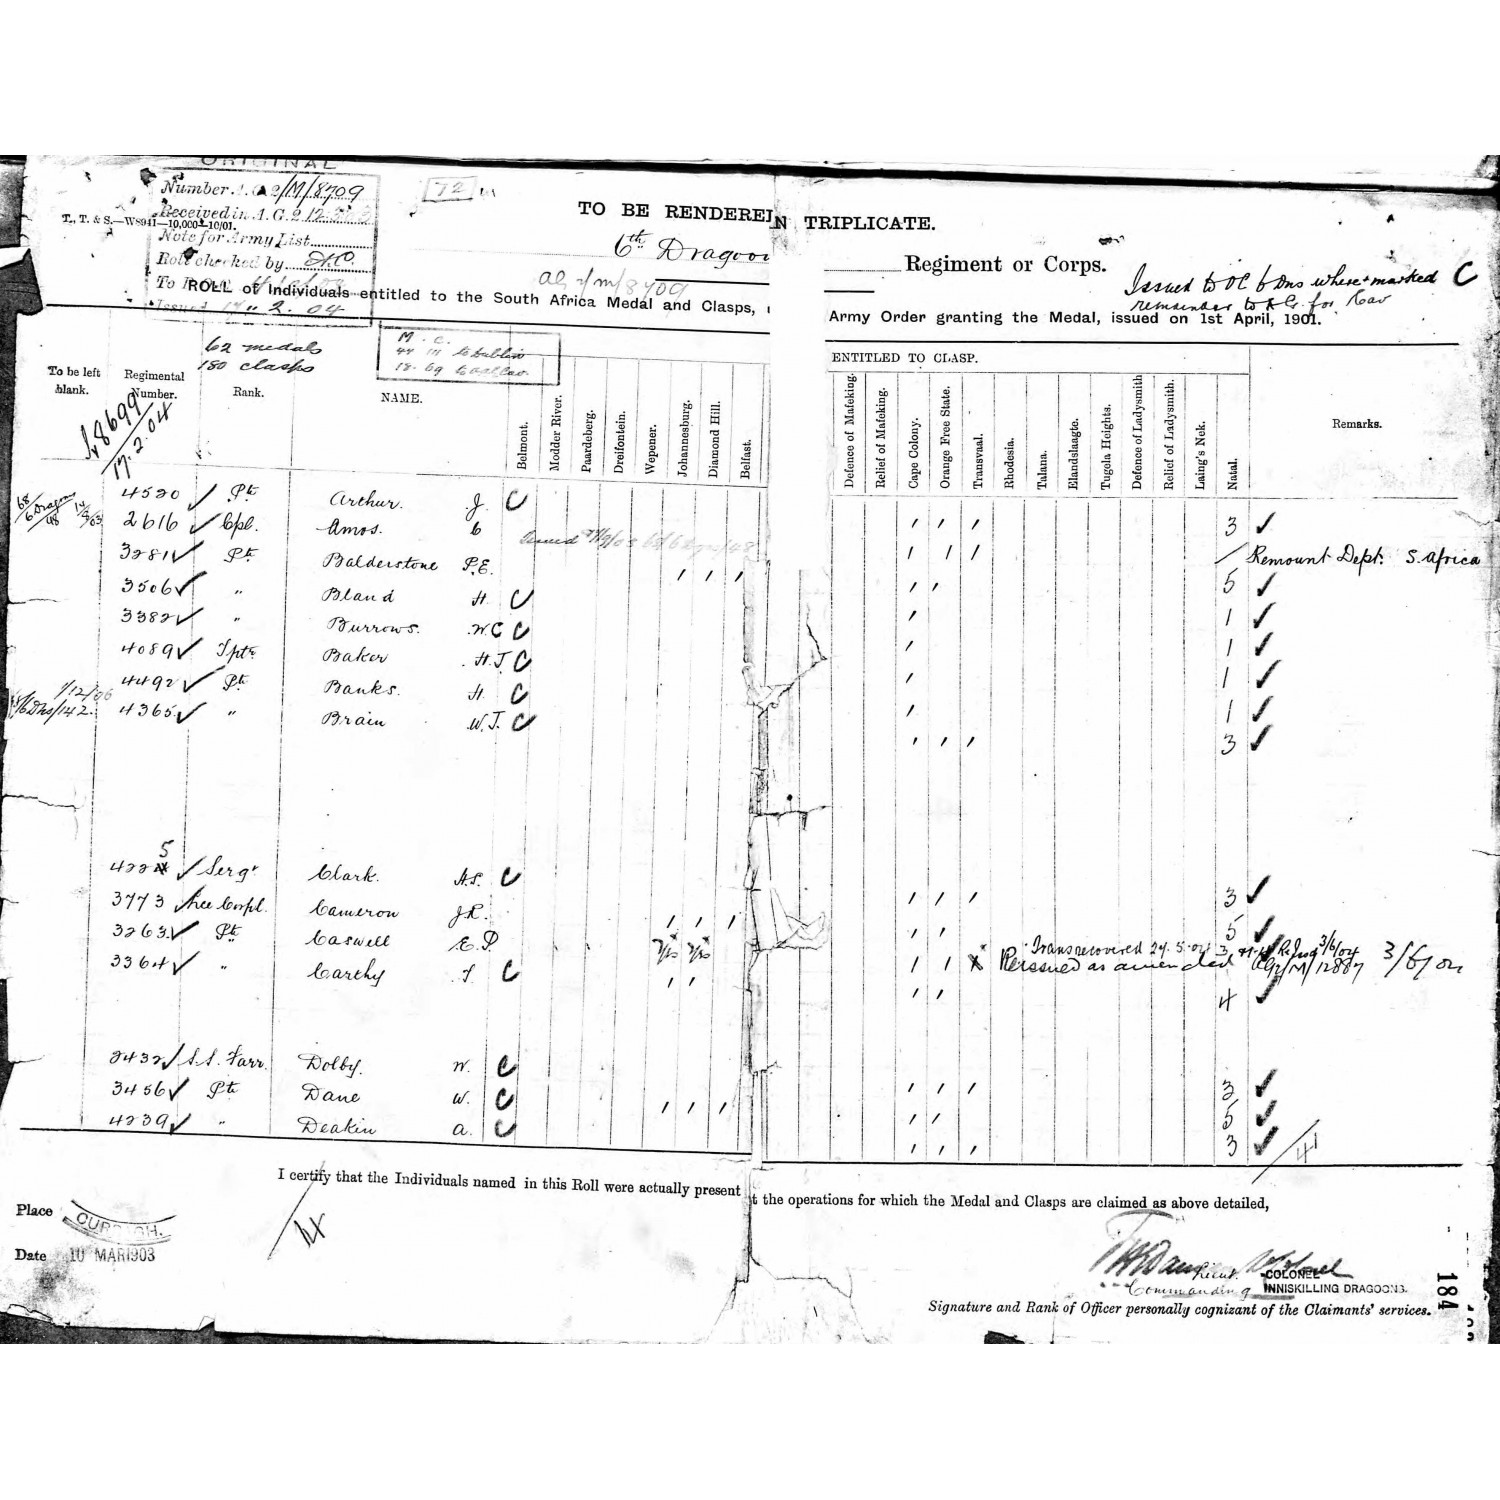 ORIGINAL
Number A.G.2/M/8709
Received in A.G.2 12.
T., T. & S.—W8941—10,000—10/01.
Note for Army List
Roll checked by
Issued 17. 2. 04
72
TO BE RENDERED IN TRIPLICATE.
6th Dragoon
Regiment or Corps.
AG2/M/8709
Issued to OC 6 Dns where marked C
remainder to for Cav
ROLL of Individuals entitled to the South Africa Medal and Clasps,
Army Order granting the Medal, issued on 1st April, 1901.
62 medals
180 clasps
M. C.
44 111 to Dublin
18. 69
To be left blank.
Regimental Number.
Rank.
NAME.
ENTITLED TO CLASP.
Belmont.
Modder River.
Paardeberg.
Dreifontein.
Wepener.
Johannesburg.
Diamond Hill.
Belfast.
Defence of Mafeking.
Relief of Mafeking.
Cape Colony.
Orange Free State.
Transvaal.
Rhodesia.
Talana.
Elandslaagte.
Tugela Heights.
Defence of Ladysmith
Relief of Ladysmith.
Laing's Nek.
Natal.
Remarks.
8699
17.2.04
4520 ✓ Pte Arthur. J. C ' ' ' 3 ✓
68/6 Drag/48 2616 ✓ Cpl. Amos. C ' ' ' / Remount Dept. S. Africa
3281 ✓ Pte Balderstone P.E. ' ' ' ' ' 5 ✓
3506 ✓ " Bland H. C ' 1 ✓
3382 ✓ " Burrows. W.C C ' 1 ✓
4089 ✓ Tptr Baker H.J C ' 1 ✓
4492 ✓ Pte Banks. H. C ' 1 ✓
1/12/06
/6Dns/142. 4365 ✓ " Brain W.J. C ' ' ' 3 ✓
4225 ✓ Sergt Clark. H.S. C ' ' ' 3 ✓
3773 ✓ Lce Corpl. Cameron J.R. ' ' ' ' ' 5 ✓
3263 ✓ Pte Caswell E.P. yes yes ' ' x Trans recovered 24.5.04 3/6/04
Reissued as amended AG2/M/12887 3/6/04
3364 ✓ " Carthy T C ' ' ' ' 4 ✓
2432 ✓ S.S. Farr. Dolby. W. C ' ' ' 3 ✓
3456 ✓ Pte Dane W. C ' ' ' ' ' 5 ✓
4239 ✓ " Deakin A. C ' ' ' 3 ✓
41
I certify that the Individuals named in this Roll were actually present at the operations for which the Medal and Clasps are claimed as above detailed,
Place CURRAGH.
Date 10 MAR 1903
Lieut. COLONEL
Commanding INNISKILLING DRAGOONS.
Signature and Rank of Officer personally cognizant of the Claimants' services.
184